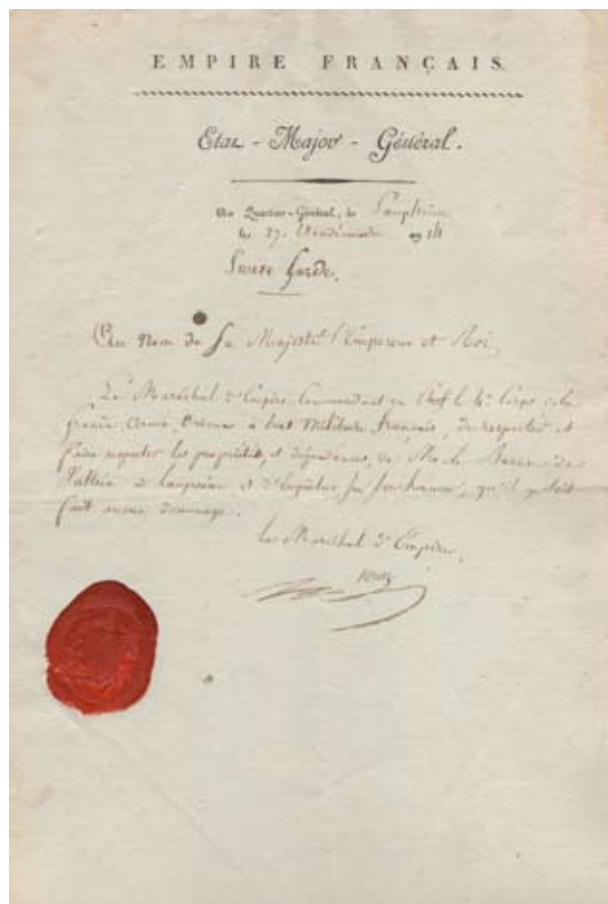 EMPIRE FRANÇAIS.
Etat-Major-Général.
Au Quartier-Général, à
le 27. Vendémiaire an 14
Sauve Garde.
Au Nom de Sa Majesté l'Empereur et Roi,
Le Maréchal d'Empire Commandant en Chef le 4e Corps de la
grande Armée, Ordonne à tout Militaire français, de respecter et
faire respecter les propriétés, et dépendances, de Mr le Baron de
à et d' qu'il ne soit
fait aucun dommage.
le Maréchal d'Empire,
Soult